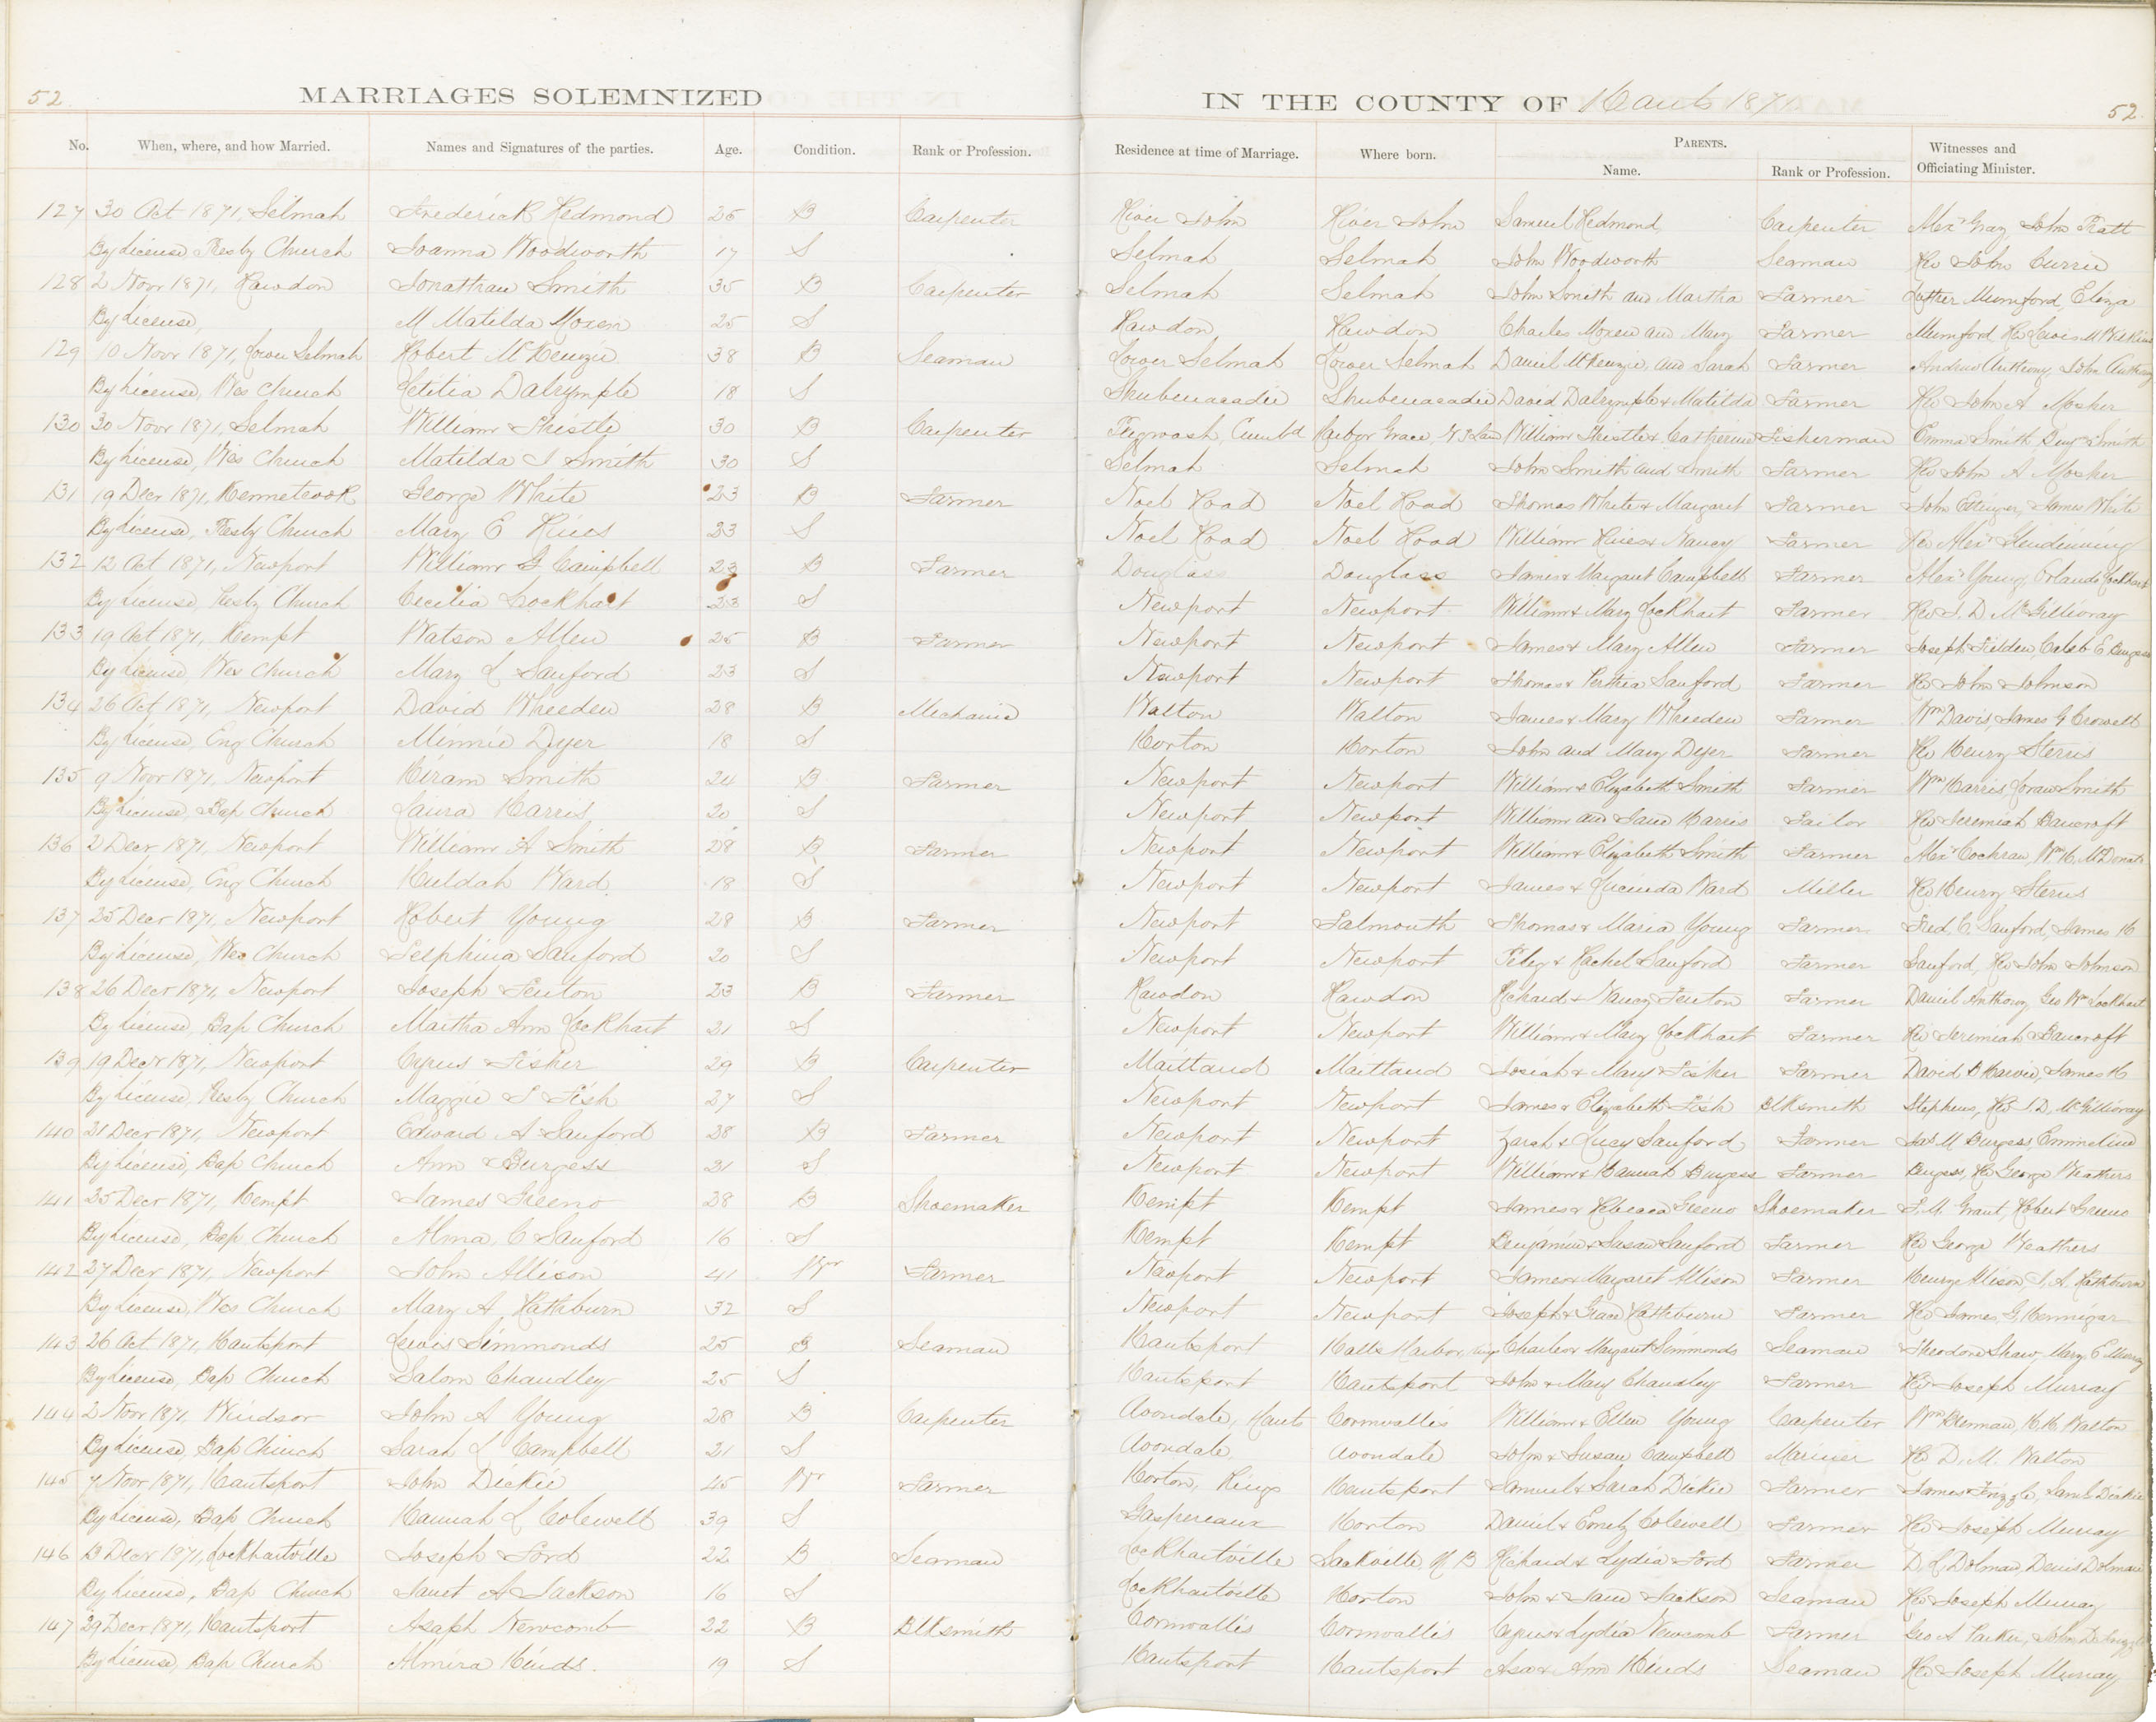 52
MARRIAGES SOLEMNIZED IN THE COUNTY OF Hants 1871
52
No. When, where, and how Married. Names and Signatures of the parties. Age. Condition. Rank or Profession. Residence at time of Marriage. Where born. PARENTS. Name. Rank or Profession. Witnesses and Officiating Minister.
127 30 Oct 1871, Selmah Frederick Redmond 25 B Carpenter River John River John Samuel Redmond Carpenter Alexr Gray John Pratt
By License, Presby Church Joanna Woodworth 17 S Selmah Selmah John Woodworth Seaman Rev John Currie
128 2 Novr 1871, Rawdon Jonathan Smith 35 B Carpenter Selmah Selmah John Smith and Martha Farmer Luther Mumford, Eliza
By License, M Matilda Moxen 25 S Rawdon Rawdon Charles Moxen and Mary Farmer Mumford Rev Lewis M Wilkins
129 10 Novr 1871, Lower Selmah Robert McKenzie 38 B Seaman Lower Selmah Lower Selmah Daniel McKenzie, and Sarah Farmer Andrew Anthony, John Anthony
By License, Wes Church Letitia Dalrymple 18 S Shubenacadie Shubenacadie David Dalrymple & Matilda Farmer Rev John A Mosher
130 30 Novr 1871, Selmah William Thistle 30 B Carpenter Pugwash, Cumbd Harbor Grace, N F Land William Thistle & Catherine Fisherman Emma Smith, Benjn Smith
By License, Wes Church Matilda J Smith 30 S Selmah Selmah John Smith and Smith Farmer Rev John A Mosher
131 19 Decr 1871, Kennetcook George White 23 B Farmer Noel Road Noel Road Thomas White & Margaret Farmer John Ettinger, James White
By License, Presby Church Mary E Hines 23 S Noel Road Noel Road William Hines & Nancy Farmer Rev Alexr Glendenning
132 12 Oct 1871, Newport William G Campbell 23 B Farmer Douglass Douglass James & Margaret Campbell Farmer Alexr Young, Orlando Lockhart
By License, Presby Church Cecilia Lockhart 23 S Newport Newport William & Mary Lockhart Farmer Rev J. D McGillivray
133 19 Oct 1871, Kempt Watson Allen 25 B Farmer Newport Newport James & Mary Allen Farmer Joseph Fielden, Caleb E Burgess
By License, Wes Church Mary L Sanford 23 S Newport Newport Thomas & Perthia Sanford Farmer Rev John Johnson
134 26 Oct 1871, Newport David Wheeden 28 B Mechanic Walton Walton James & Mary Wheeden Farmer Wm Davis, James G Crowell
By License, Eng Church Minnie Dyer 18 S Horton Horton John and Mary Dyer Farmer Rev Henry Sterns
135 9 Novr 1871, Newport Hiram Smith 24 B Farmer Newport Newport William & Elizabeth Smith Farmer Wm Harris, Smith
By License, Bap Church Laura Harris 20 S Newport Newport William and Jane Harris Tailor Rev Jeremiah Bancroft
136 2 Decr 1871, Newport William A Smith 28 B Farmer Newport Newport William & Elizabeth Smith Farmer Alexr Cochran, Wm H. McDonald
By License, Eng Church Huldah Ward 18 S Newport Newport James & Lucinda Ward Miller Rev Henry Sterns
137 25 Decr 1871, Newport Robert Young 28 B Farmer Newport Falmouth Thomas & Maria Young Farmer Fred, C Sanford, James H
By License, Wes Church Selphina Sanford 20 S Newport Newport Peleg & Rachel Sanford Farmer Sanford, Rev John Johnson
138 26 Decr 1871, Newport Joseph Fenton 23 B Farmer Rawdon Rawdon Richard & Nancy Fenton Farmer Daniel Anthony, Geo Wm Lockhart
By License, Bap Church Martha Ann Lockhart 21 S Newport Newport William & Mary Lockhart Farmer Rev Jeremiah Bancroft
139 19 Decr 1871, Newport Cyrus Fisher 29 B Carpenter Maitland Maitland Josiah & Mary Fisher Farmer David B Harvie, James H
By License, Presby Church Maggie J Fish 27 S Newport Newport James & Elizabeth Fish Blksmith Stephens, Rev J. D. McGillivray
140 21 Decr 1871, Newport Edward A Sanford 28 B Farmer Newport Newport Zarah & Lucy Sanford Farmer Jas M Burgess Emmeline
By License, Bap Church Ann & Burgess 21 S Newport Newport William & Hannah Burgess Farmer Burgess, Rev George Weathers
141 25 Decr 1871, Kempt James Greeno 28 B Shoemaker Kempt Kempt James & Rebecca Greeno Shoemaker J. M. Grant, Robert Greeno
By License, Bap Church Alma, C Sanford 16 S Kempt Kempt Benjamin & Susan Sanford Farmer Rev George Weathers
142 27 Decr 1871, Newport John Allison 41 Wr Farmer Newport Newport James & Margaret Allison Farmer Henry Allison, J. A. Rathburn
By License, Wes Church Mary A, Rathburn 32 S Newport Newport Joseph & Rathburn Farmer Rev James, G, Hennigar
143 26 Oct 1871, Hantsport Lewis Simmonds 25 B Seaman Hantsport Halls Harbor, Kings Charles & Margaret Simmonds Seaman Theodore Shaw, Mary E Murray
By License, Bap Church Salom Chandley 25 S Hantsport Hantsport John & Mary Chandley Farmer Rev Joseph Murray
144 2 Novr 1871, Windsor John A Young 28 B Carpenter Avondale, Hants Cornwallis William & Ellen Young Carpenter Wm Burman, H. H. Walton
By License, Bap Church Sarah L Campbell 21 S Avondale, Avondale John & Susan Campbell Mariner Rev D. M. Walton
145 7 Novr 1871, Hantsport John Dickie 45 Wr Farmer Horton, Kings Hantsport Samuel & Sarah Dickie Farmer James Frizzle, Saml Dickie
By License, Bap Church Hannah L Colewell 39 S Gaspereaux Horton Daniel & Emily Colewell Farmer Rev Joseph Murray
146 13 Decr 1871, Lockhartville Joseph Ford 22 B Seaman Lockhartville Sackville, N B Richard & Lydia Ford Farmer D. L Dolman, Denis Dolman
By License, Bap Church Janet A Jackson 16 S Lockhartville Horton John & Jane Jackson Seaman Rev Joseph Murray
147 29 Decr 1871, Hantsport Asaph Newcomb 22 B Blksmith Cornwallis Cornwallis Cyrus & Lydia Newcomb Farmer Geo A Parker, John D
By License, Bap Church Almira Hinds. 19 S Hantsport Hantsport Asa & Ann Hinds Seaman Rev Joseph Murray